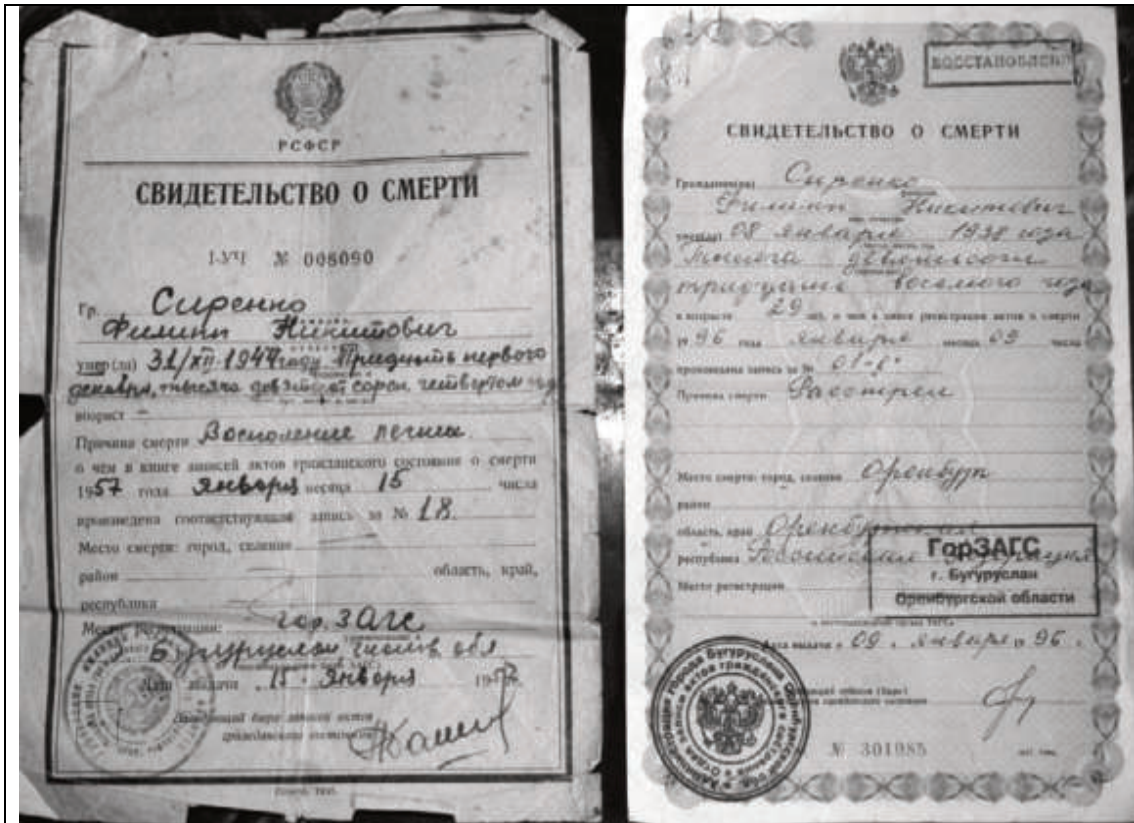 РСФСР
СВИДЕТЕЛЬСТВО О СМЕРТИ
I-УЧ № 008090
Гр. Сиренко
Филипп Никитович
умер(ла) 31/XII-1944 году Тридцать первого
декабря, тысяча девятьсот сорок четвертом году
возраст —
Причина смерти Восполение легких
о чем в книге записей актов гражданского состояния о смерти
1957 года Января месяца 15 числа
произведена соответствующая запись за № 18.
Место смерти: город, селение
район область, край,
республика
Место регистрации: гор. ЗАГС
Бугуруслан обл
Дата выдачи 15 Января 1957
Заведующий бюро записей актов
гражданского состояния
ВОССТАНОВЛЕНО
СВИДЕТЕЛЬСТВО О СМЕРТИ
Гражданин(ка) Сиренко
Филипп Никитович
умер(ла) 08 января 1938 года
тысяча девятьсот
тридцать восьмого года
в возрасте 29 лет, о чем в книге регистрации актов о смерти
19 96 года января месяца 09 числа
произведена запись за № 01-с
Причина смерти Расстрел
Место смерти: город, селение Оренбург
район
область, край Оренбургская
республика Российская Федерация
Место регистрации
ГорЗАГС
г. Бугуруслан
Оренбургской области
Дата выдачи « 09 » января 19 96 г.
№ 301985